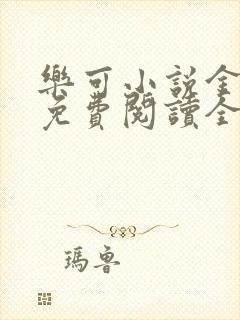 樂可小說全
免費閱讀全
瑪魯